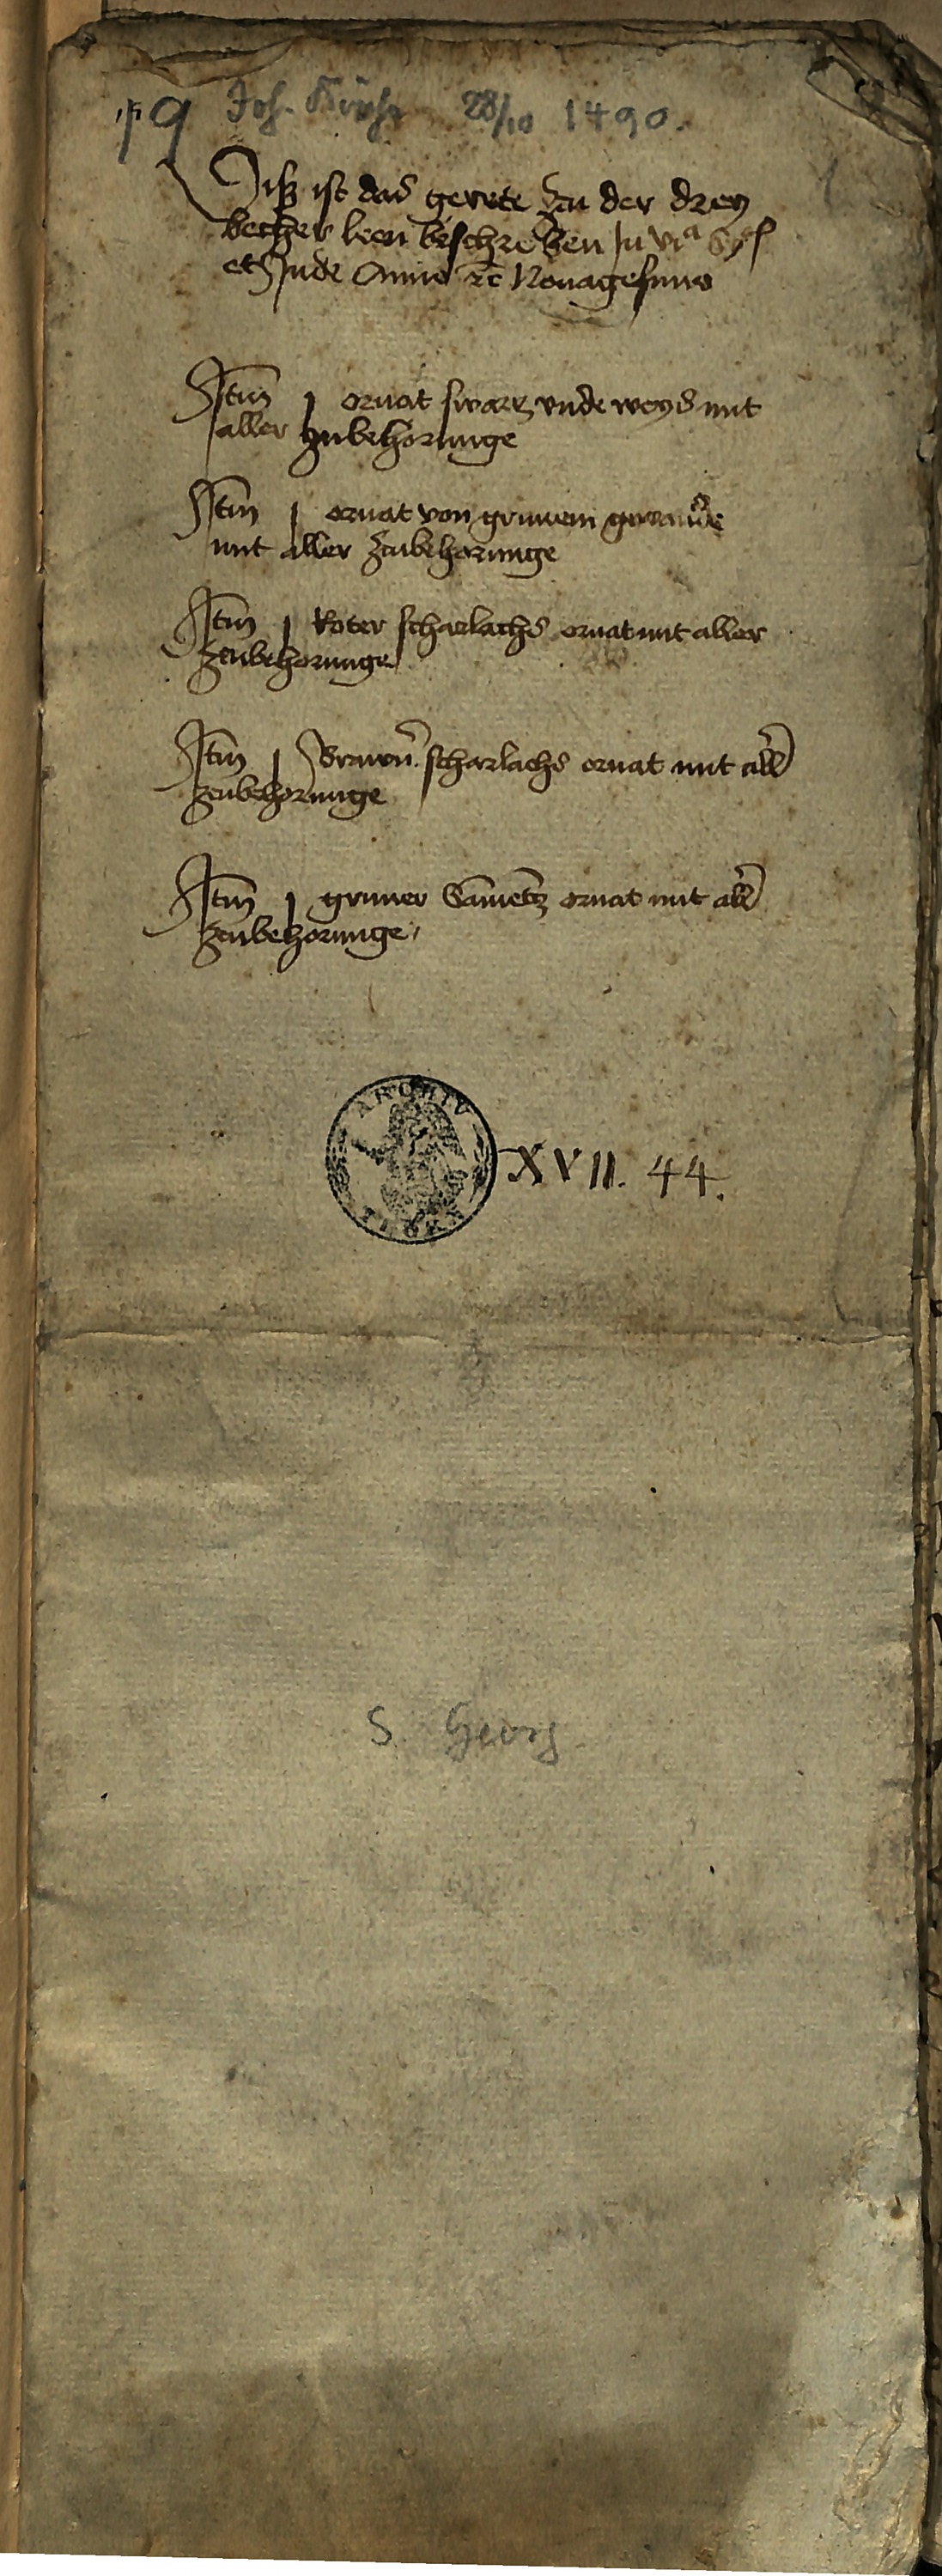 Joh. Kirche 28/10 1490.
1
Disz ist das gerete zcu der drey
becher leen beschreben In via Sy
et Jude Anno etc Nonagesimo
Item j ornat swarz vnde weys mit
aller zubehorunge
Item j ornat von grunem gewande
mit aller zcubehorunge
Item j Roter scharlachs ornat mit aller
zcubehorunge
Item j Brawn scharlachs ornat mit all
zcubehorunge
Item j gruner Sametz ornat mit all
zcubehorunge
ARCHIV
THORN
XVII. 44.
S. Georg